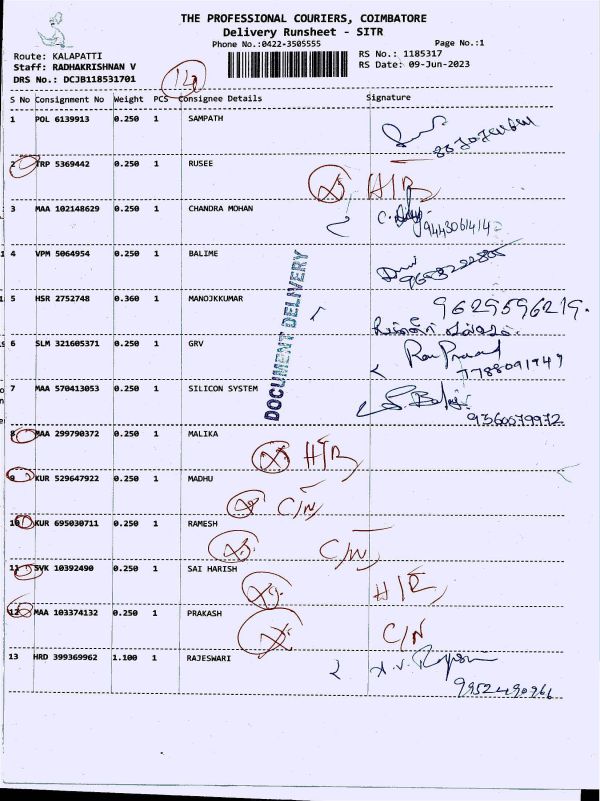 THE PROFESSIONAL COURIERS, COIMBATORE
Delivery Runsheet - SITR
Phone No.:0422-3505555 Page No.:1
Route: KALAPATTI RS No.: 1185317
Staff: RADHAKRISHNAN V RS Date: 09-Jun-2023
DRS No.: DCJB118531701
S No Consignment No Weight PCS Consignee Details Signature
1 POL 6139913 0.250 1 SAMPATH
2 TRP 5369442 0.250 1 RUSEE
3 MAA 102148629 0.250 1 CHANDRA MOHAN
9443061414
4 VPM 5064954 0.250 1 BALIME
DOCUMENT DELIVERY
5 HSR 2752748 0.360 1 MANOJKKUMAR 9629596219.
6 SLM 321605371 0.250 1 GRV
7788091949
7 MAA 570413053 0.250 1 SILICON SYSTEM
9360079972
8 MAA 299790372 0.250 1 MALIKA
9 KUR 529647922 0.250 1 MADHU
C/N
10 KUR 695030711 0.250 1 RAMESH
C/N
11 SVK 10392490 0.250 1 SAI HARISH
12 MAA 103374132 0.250 1 PRAKASH
C/N
13 HRD 399369962 1.100 1 RAJESWARI
9952490966